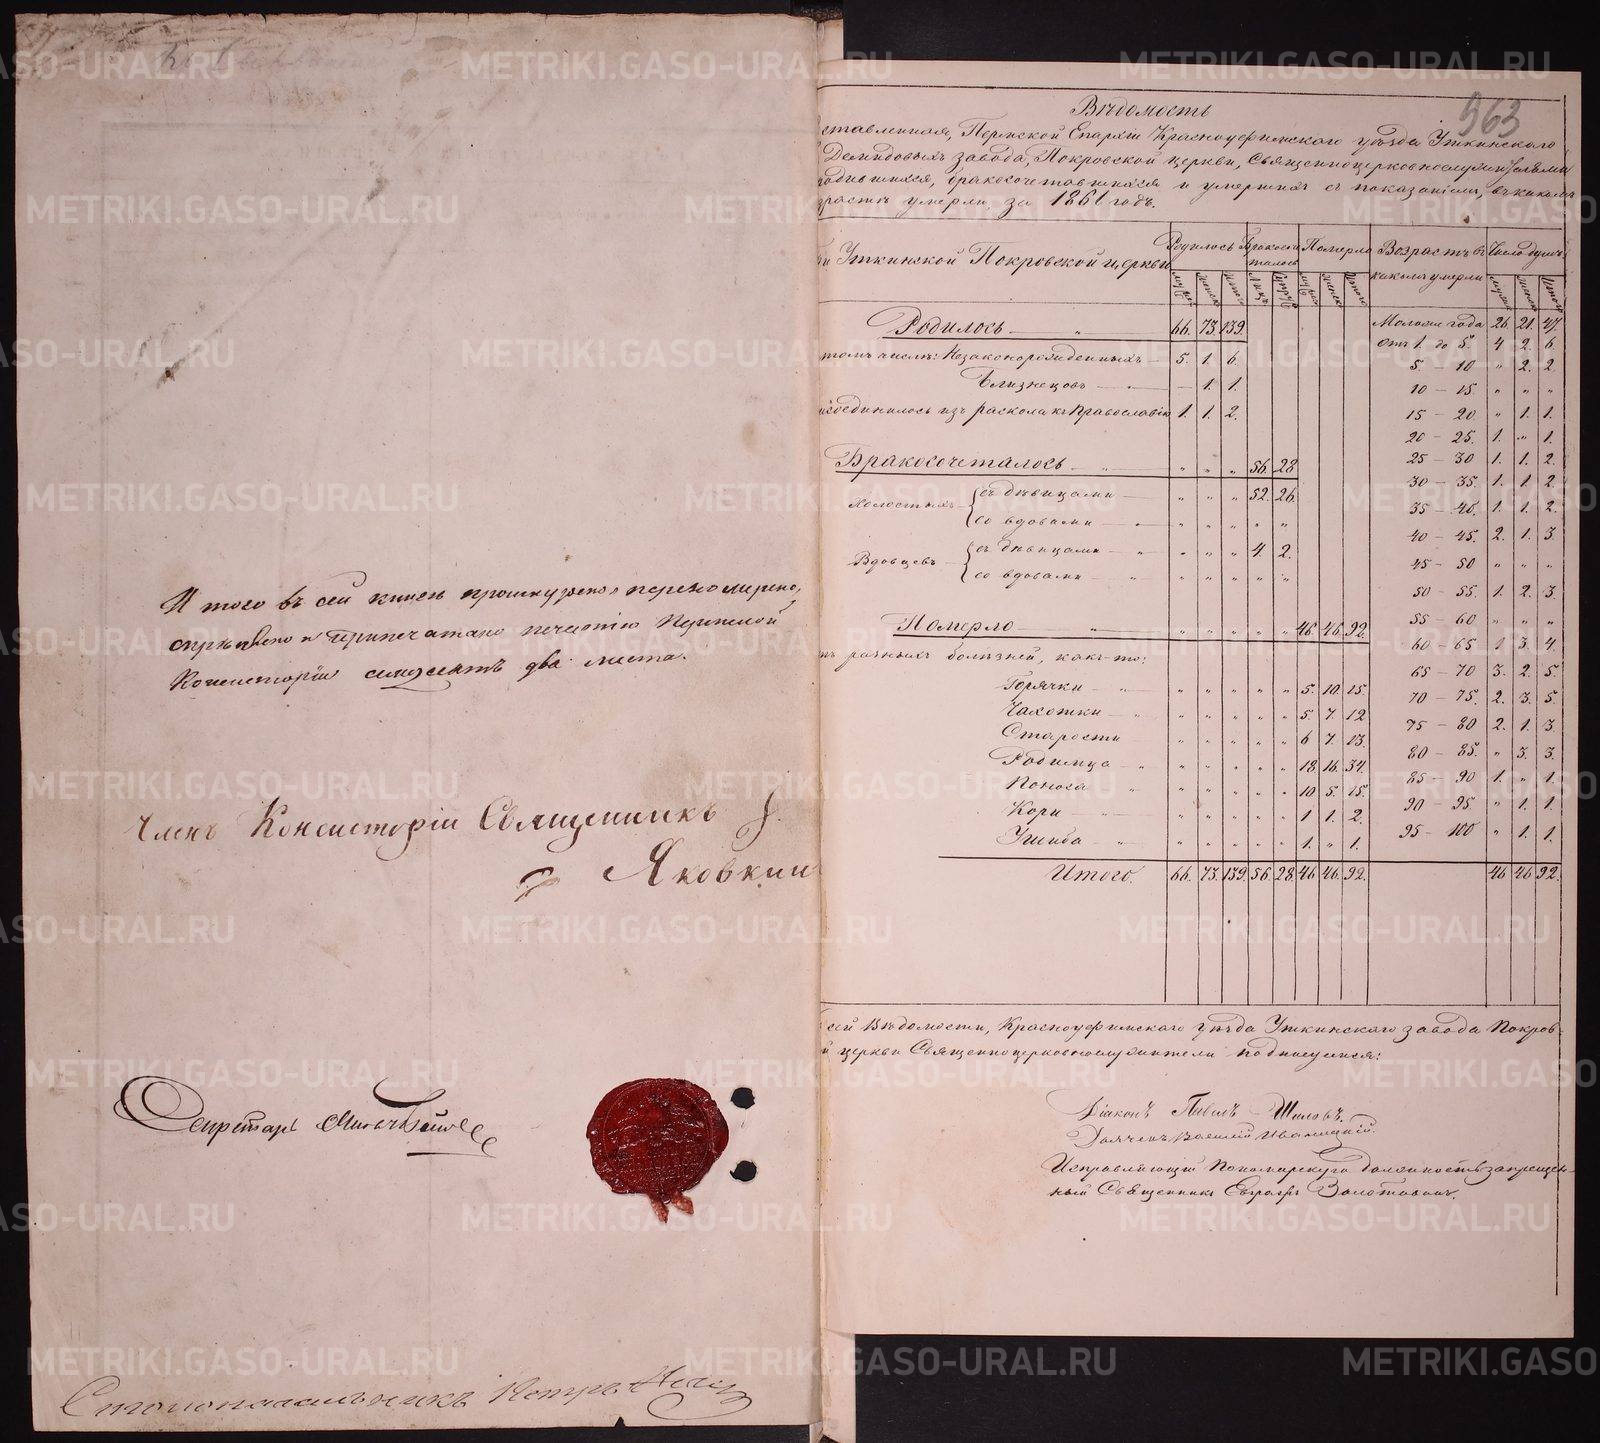 И того въ сей книгѣ прошнуровано, перенумеровано,
скрѣплено и припечатано печатію Пермской
Консисторіи семдесятъ два листа.
Членъ Консисторіи Священникъ
Яковкин
Секретарь
Столоначальникъ Петръ
963
Вѣдомость
ставленная, Пермской Епархіи Красноуфимскаго уѣзда Уткинскаго
Демидовыхъ завода, Покровской церкви, Священноцерковнослужителями
родившихся, бракосочетавшихся и умершихъ съ показаніемъ, въ какомъ
зрастѣ умерли, за 1861 годъ.
Уткинской Покровской церкви Родилось Бракосочеталось Померло Возрастъ въ какомъ умерли Число душъ
Муж. Женск. Итого Лицъ Супруж. Муж. Женск. Итого Мужск. Женск. Итого
Родилось — „ 66. 73. 139. Моложе года 26. 21. 47.
томъ числѣ: Незаконорожденныхъ — 5. 1. 6. Отъ 1. до 5. 4. 2. 6.
5 – 10 „ 2. 2.
Близнецовъ — — 1. 1. 10 – 15. „ „ „
соединилось изъ раскола къ Православію 1. 1. 2. 15 – 20. „ 1. 1.
20 – 25. 1. „ 1.
Бракосочеталось — „ „ „ „ 56. 28 25 – 30 1. 1. 2.
Холостыхъ — съ дѣвицами — „ „ „ 52. 26. 30 – 35. 1. 1. 2.
со вдовами — „ „ „ „ „ „ 35 – 40. 1. 1. 2.
Вдовцевъ — съ дѣвицами — „ „ „ „ 4. 2. 40 – 45. 2. 1. 3.
со вдовами — „ „ „ „ „ „ 45 – 50 „ „ „
50 – 55. 1. 2. 3.
Померло — „ „ „ „ „ „ 46. 46. 92. 55 – 60 „ „ „
разныхъ болѣзней, какъ-то: 60 – 65 1 3. 4.
65 – 70 3. 2. 5.
Горячки — „ „ „ „ „ „ 5. 10. 15. 70 – 75. 2. 3. 5.
Чахотки — „ „ „ „ „ „ 5. 7. 12 75 – 80 2. 1. 3.
Старости „ „ „ „ „ 6 7. 13. 80 – 85. „ 3. 3.
Родимца — „ „ „ „ „ „ 18. 16. 34. 85 – 90 1. „ 1.
Поноса „ „ „ „ „ „ 10 5. 15. 90 – 95. „ 1. 1.
Кори — „ „ „ „ „ 1 1. 2. 95 – 100 „ 1. 1.
Ушиба — „ „ „ „ „ „ 1. „ 1.
Итого. 66. 73. 139. 56. 28. 46 46. 92. 46 46 92.
сей Вѣдомости, Красноуфимскаго уѣзда Уткинскаго завода Покров-
й церкви Священноцерковнослужители подписуемся:
Діаконъ Павелъ Шиловъ.
Дьячекъ Василій Иваницкій.
Исправляющій Пономарскую должность запрещен-
ный Священникъ Евграфъ Золотовъ.
METRIKI.GASO-URAL.RU